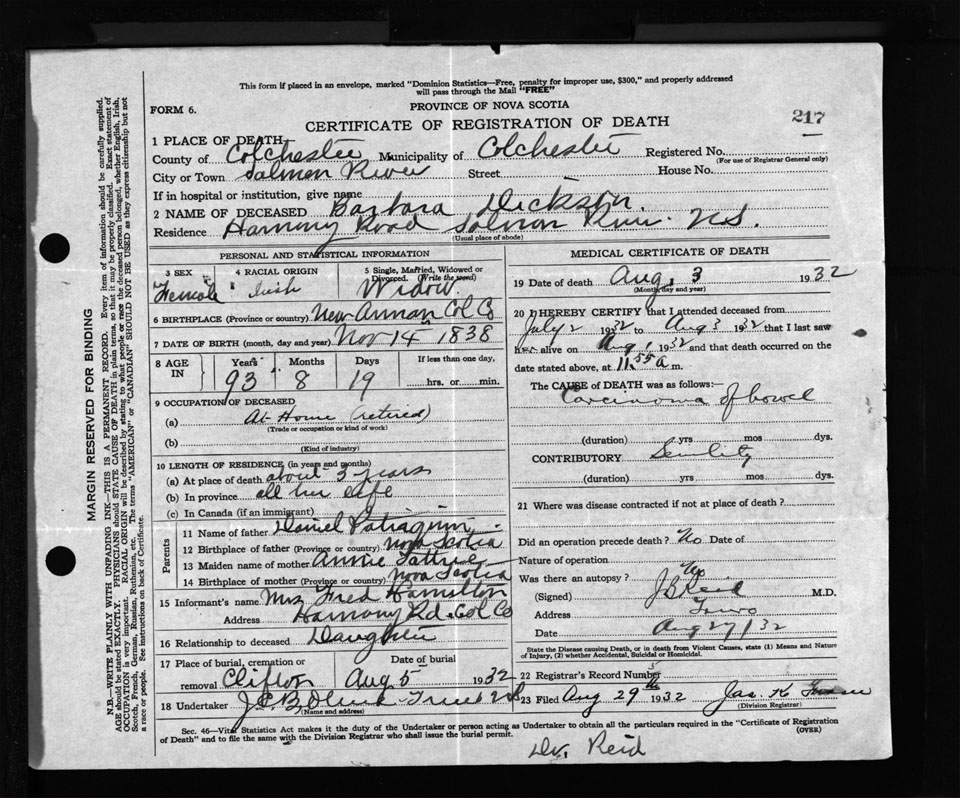 This form if placed in an envelope, marked "Dominion Statistics—Free, penalty for improper use, $300," and properly addressed
will pass through the Mail "FREE"
FORM 6.
PROVINCE OF NOVA SCOTIA
217
CERTIFICATE OF REGISTRATION OF DEATH
1 PLACE OF DEATH
County of Colchester Municipality of Colchester Registered No.
(For use of Registrar General only)
City or Town Salmon River Street House No.
If in hospital or institution, give name
2 NAME OF DECEASED Barbara Dickson.
Residence Harmony Road Salmon River N.S.
(Usual place of abode)
PERSONAL AND STATISTICAL INFORMATION
3 SEX 4 RACIAL ORIGIN 5 Single, Married, Widowed or
Divorced. (Write the word)
Female Irish Widow.
6 BIRTHPLACE (Province or country) New Annan Col Co
7 DATE OF BIRTH (month, day and year) Nov 14 1838
8 AGE IN Years Months Days If less than one day,
93 8 19 hrs. or min.
9 OCCUPATION OF DECEASED
(a) At Home (retired)
(Trade or occupation or kind of work)
(b)
(Kind of industry)
10 LENGTH OF RESIDENCE (in years and months)
(a) At place of death about 3 years
(b) In province all her life
(c) In Canada (if an immigrant)
Parents
11 Name of father Daniel
12 Birthplace of father (Province or country) Nova Scotia
13 Maiden name of mother Annie
14 Birthplace of mother (Province or country) Nova Scotia
15 Informant's name Mrs Fred Hamilton
Address Harmony Rd. Col Co
16 Relationship to deceased Daughter
17 Place of burial, cremation or Date of burial
removal Clifton Aug 5 1932
18 Undertaker
(Name and address)
MEDICAL CERTIFICATE OF DEATH
19 Date of death Aug, 3 1932
(Month, day and year)
20 I HEREBY CERTIFY that I attended deceased from
July 2 1932 to Aug 3 1932 that I last saw
her alive on Aug 1 1932 and that death occurred on the
date stated above, at 11.55 a m.
The CAUSE of DEATH was as follows:—
Carcinoma of bowel
(duration) yrs mos dys.
CONTRIBUTORY Senility
(duration) yrs mos dys.
21 Where was disease contracted if not at place of death?
Did an operation precede death? No Date of
Nature of operation
Was there an autopsy? No
(Signed) Reid M.D.
Address Truro
Date Aug 27/32
State the Disease causing Death, or in death from Violent Causes, state (1) Means and Nature
of Injury, (2) whether Accidental, Suicidal or Homicidal.
22 Registrar's Record Number
23 Filed Aug 29th 1932 Jas. K
(Division Registrar)
Sec. 46—Vital Statistics Act makes it the duty of the Undertaker or person acting as Undertaker to obtain all the particulars required in the "Certificate of Registration
of Death" and to file the same with the Division Registrar who shall issue the burial permit.
(OVER)
Dr. Reid
MARGIN RESERVED FOR BINDING
N.B.—WRITE PLAINLY WITH UNFADING INK—THIS IS A PERMANENT RECORD. Every item of information should be carefully supplied.
AGE should be stated EXACTLY. PHYSICIANS should STATE CAUSE OF DEATH in plain terms, so that it may be properly classified. Exact statement of
OCCUPATION is very important. RACIAL ORIGIN will be described by stating to what people or race the deceased person belonged, whether English, Irish,
Scotch, French, German, Russian, Ruthenian, etc. The terms "AMERICAN" or "CANADIAN" SHOULD NOT BE USED as they express citizenship but not
a race or people. See instructions on back of Certificate.